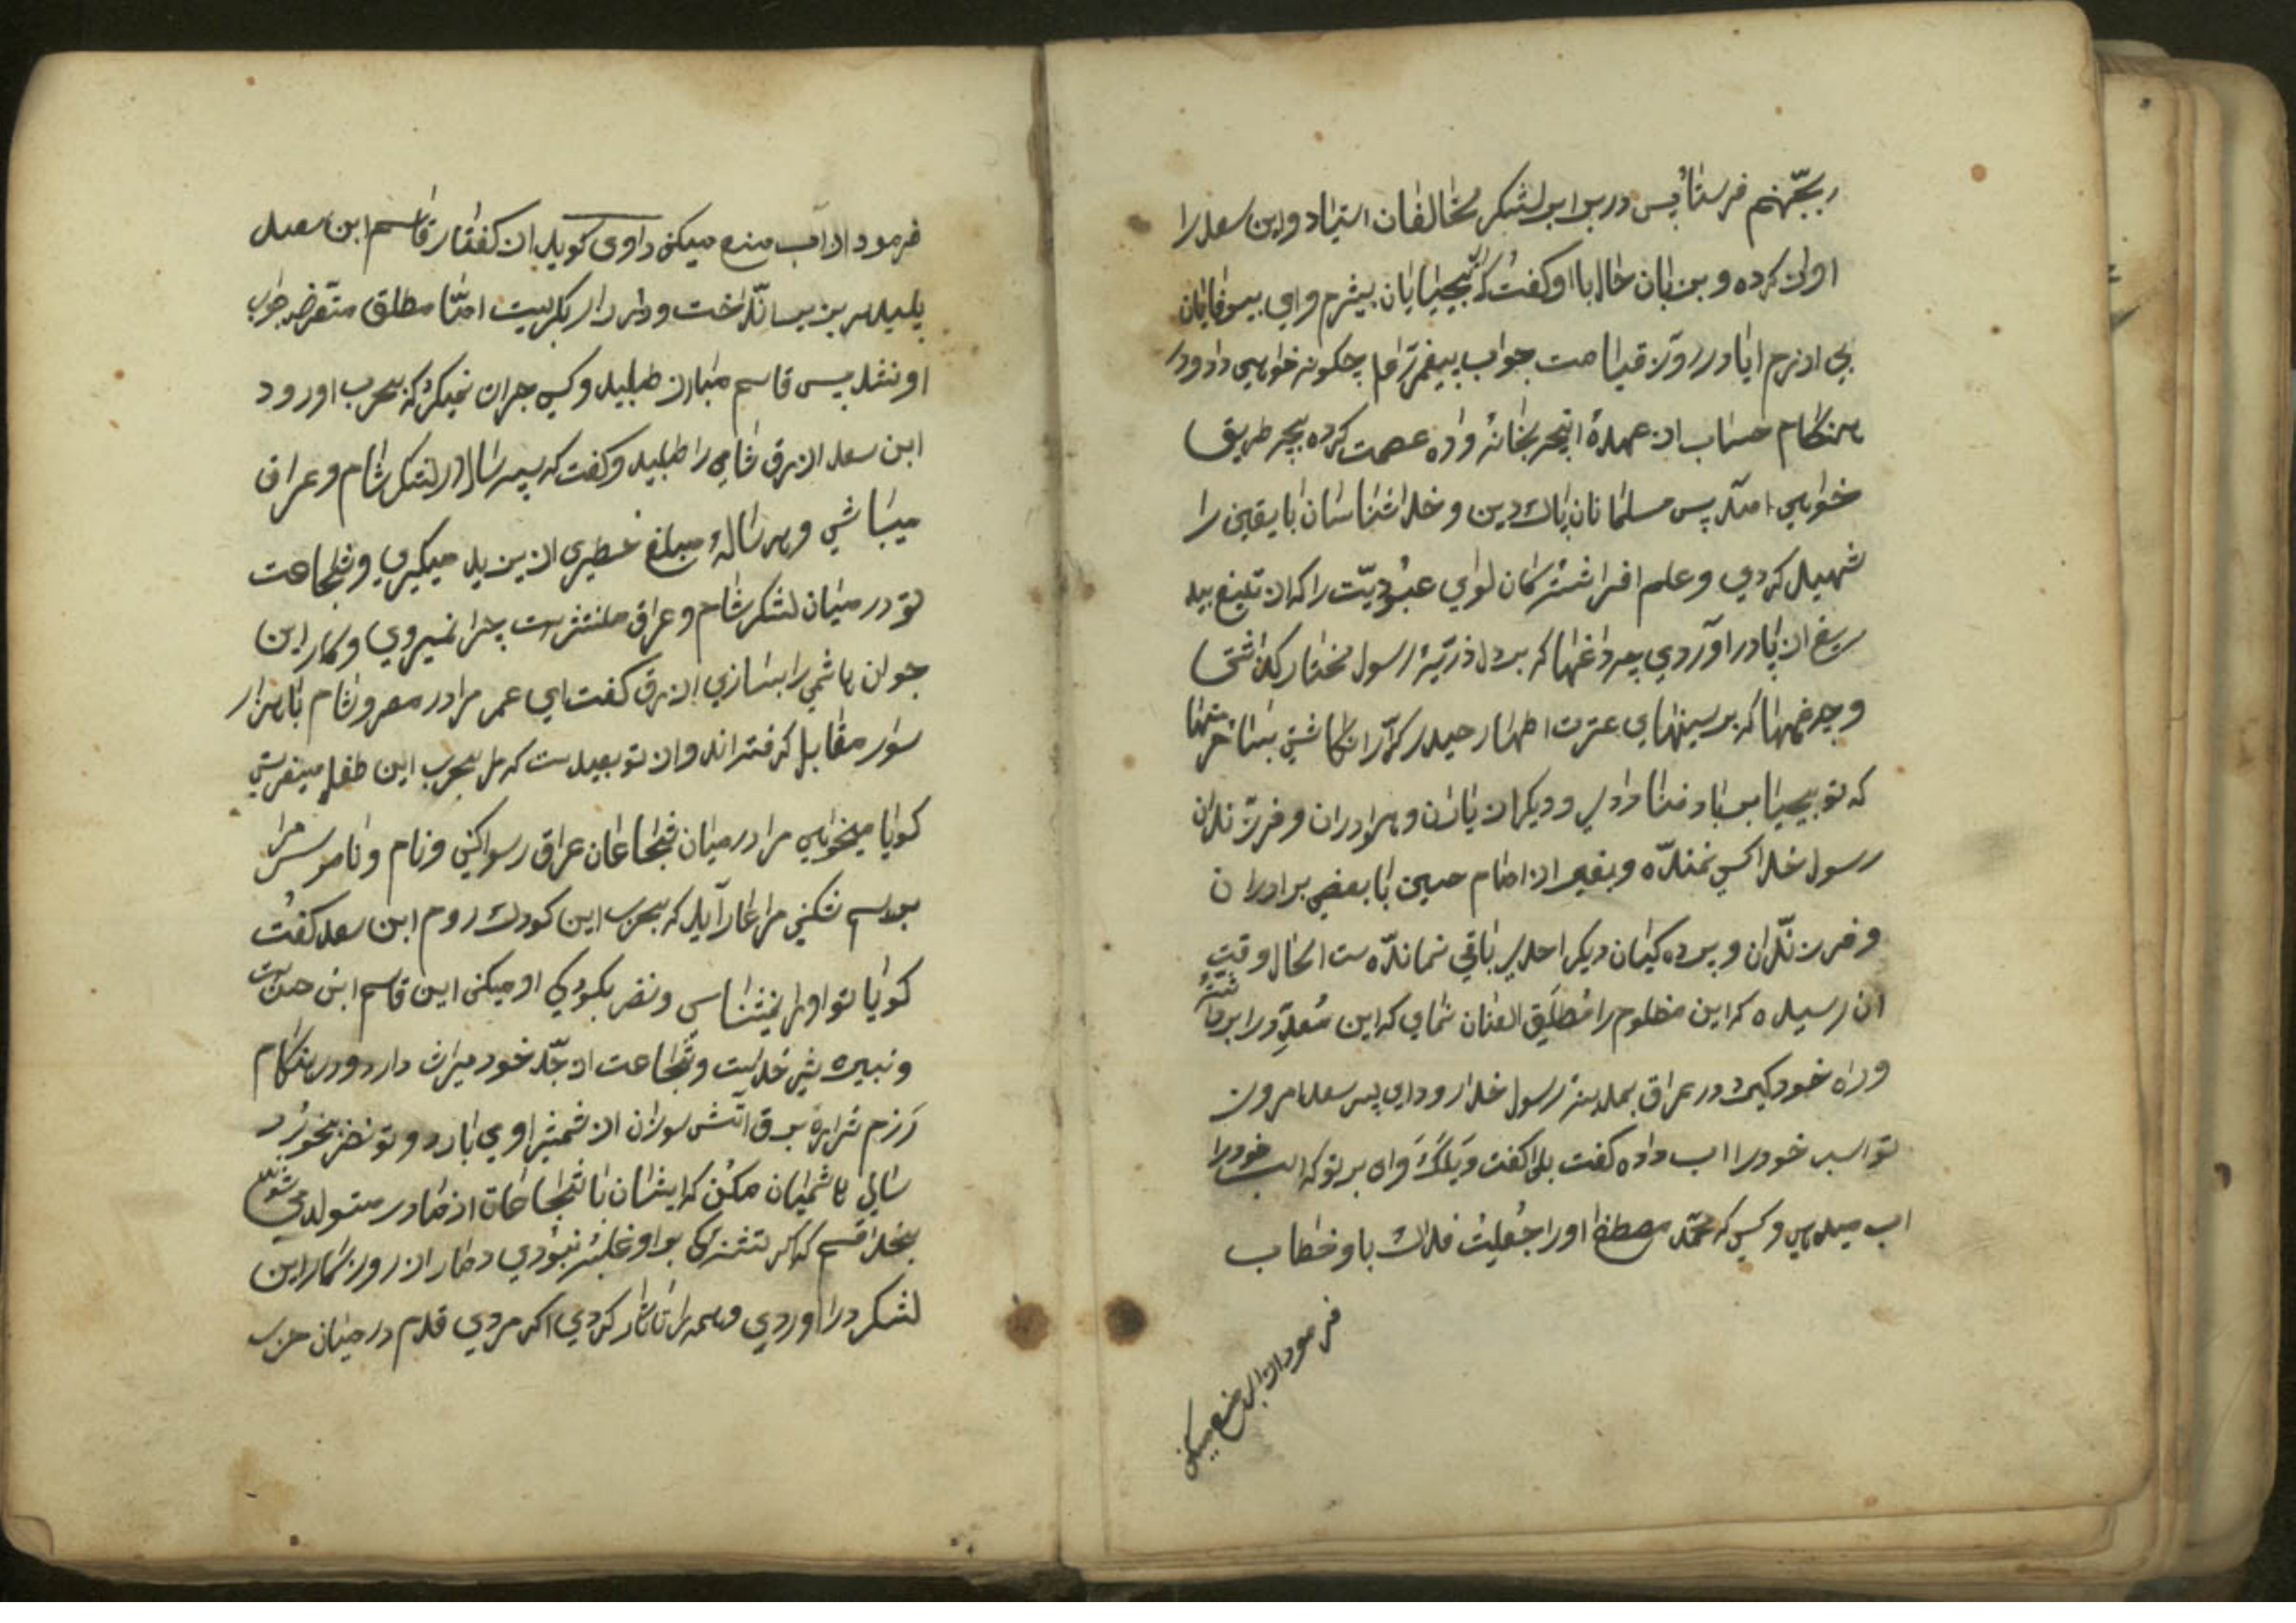 بجهنم فرستاد پس در برابر لشکر مخالفان استاد و ابن سعد را
اواز کرده و بزبان حال با او کفت که ای بیحیایان بیشرم و ای بیوفایان
بی ازرم ایا در روز قیامت جواب پیغمبر را چکونه خواهی داد و در
هنکام حساب از عهدهٔ انچه بخانه واده عصمت کرده بچه طریق
خواهی امد پس مسلمانان پاک دین و خداشناسان با یقین را
شهید کردی و علم افراشتهکان لوای عبودیّت را که از تیغ بید
ریغ از پا در اوردی چه داغها که بر دل ذرّیهٔ رسول مختار نکذاشتی
و چه زخمها که بر سینهای عترت اطهار حیدر کرّار نکاشتی بشاختها
که تو بیحیا بر باد فنا دادی و دیکر از یاران و برادران و فرزندان
رسول خدا کسی نمنده و بغیر از امام حسین با بعضی برادران
و فرزندان و پرده کیان دیکر احدی باقی نمانده است الحال وقت
ان رسیده که این مظلوم را مُطلَق العنان نمای که این معدود را برداشته
و راه خود کیرد در عراق بمدینه رسول خدا رود ای پسر سعد امروز
تو اسب خود را اب داده کفت بلی کفت وَیلَکَ وای بر تو که اسب خود را
اب میدهی و کسی که محمّد مصطفی او را جُعِلتُ فداک باو خطاب
فرمود از اب منع میکنی
فرمود از اب منع میکنی راوی کوید از کفتار قاسم ابن سعد
پلید سر بزیر انداخت و زار زار بکریست امّا مطلق متعرض جواب
او نشد پس قاسم مبارز طلبید و کسی جرات نمیکرد که بحرب او رود
ابن سعد ازرق شامی را طلبید و کفت که سپه سالار لشکر شام و عراق
میباشی و هر ساله مبلغ خطیری از یزید میکیری و شجاعت
تو در میان لشکر شام و عراق منتشرست چرا نمیروی و کار این
جوان هاشمی را بسازی ازرق کفت ای عمر مرا در مصر و شام با هزار
سوار مقابل کرفته اند و از تو بعیدست که مرا بحرب این طفل میفرستی
کویا میخواهی مرا در میان شجاعان عراق رسوا کنی و نام و ناموس مرا
بر هم شکنی مرا عار آید که بحرب این کودک روم ابن سعد کفت
کویا تو او را نمیشناسی و نظر بکودکی او میکنی این قاسم ابن حسن است
و نبیره شیر خداست و شجاعت از جدّ خود میراث دارد و در هنکام
رزم شراره برق اتش سوزان از شمشیر او می بارد و تو نظر بخورد
سالی هاشمیان مکن که ایشان با شجاعات از مادر متولد می شوند
بخدا قسم که اکر تشنکی بر او غلبه نبودی دمار از روزکار این
لشکر در اوردی و همه را تارمار کردی اکر مردی قدم در میدان حرب